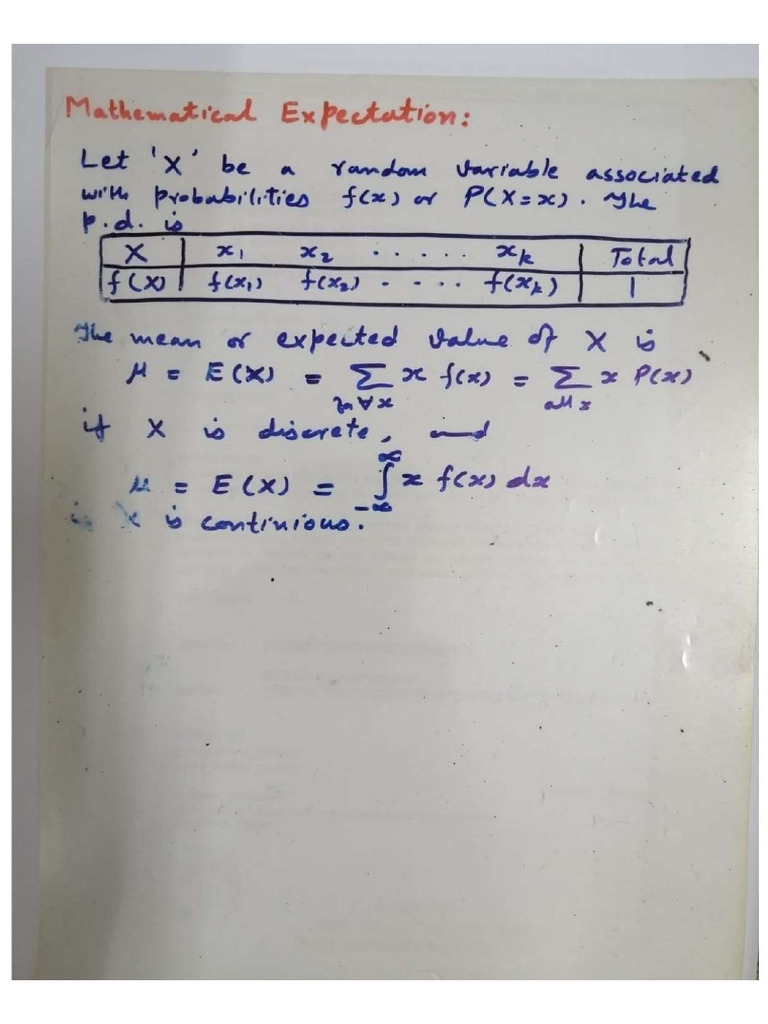 Mathematical Expectation:
Let 'X' be a random variable associated
with probabilities f(x) or P(X=x). The
p.d. is
X x₁ x₂ ..... xₖ Total
f(X) f(x₁) f(x₂) .... f(xₖ) 1
The mean or expected value of X is
μ = E(X) = Σ x f(x) = Σ x P(x)
∀x all x
if X is discrete, and
μ = E(X) = ∫ x f(x) dx
∞
-∞
X is continious.